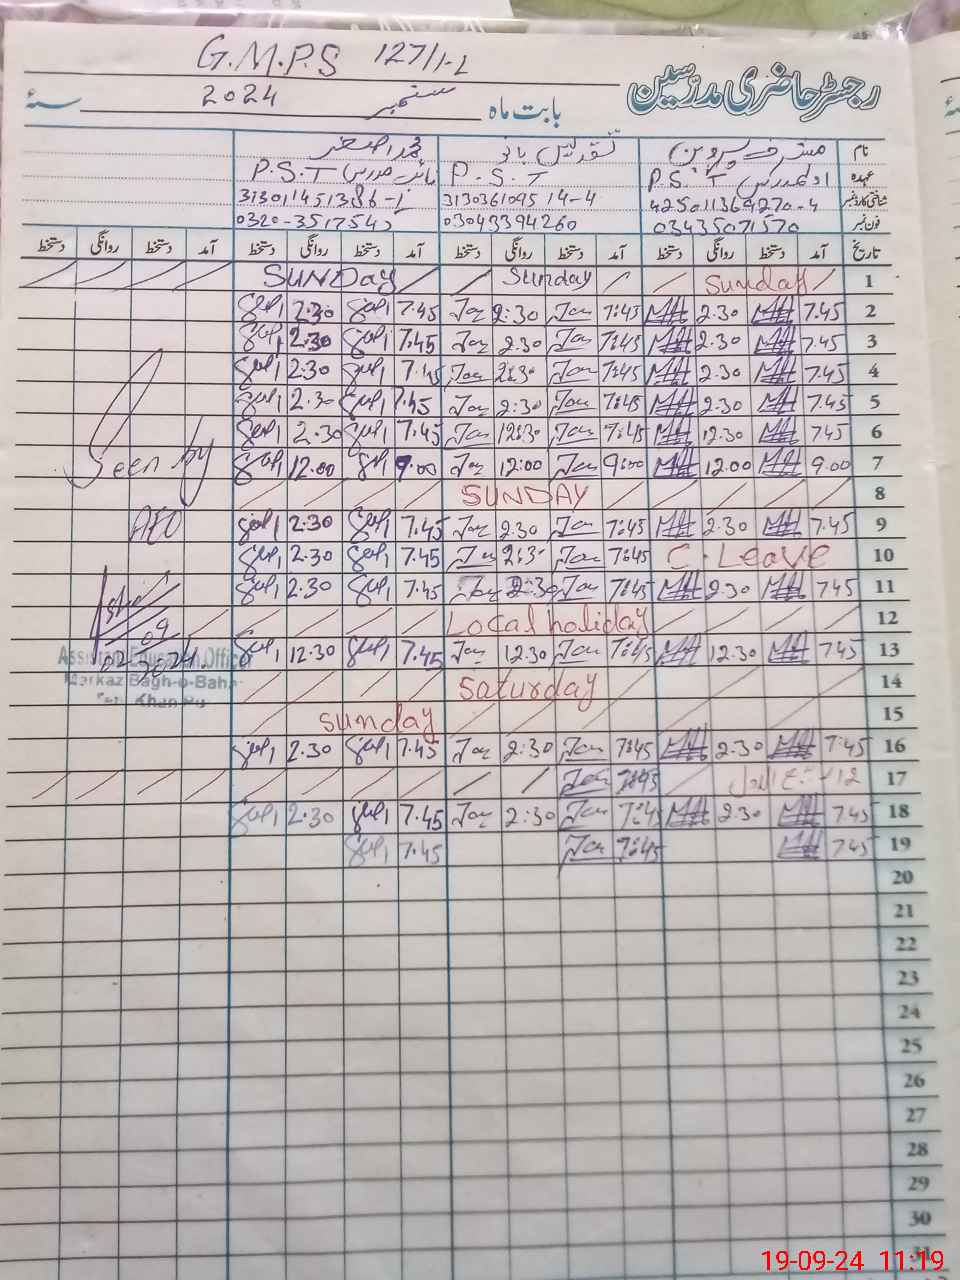 G.M.P.S 127/1-L
رجسٹر حاضری مدرسین
بابت ماہ ستمبر 2024 سنۂ
نام مشرف پروین تقدیس بانو محمد اصغر
عہدہ P.S.T P.S.T P.S.T
شناختی کارڈ نمبر 313036109514-4
فون نمبر 03435071570 03043394260 0320-
تاریخ آمد دستخط روانگی دستخط آمد دستخط روانگی دستخط آمد دستخط روانگی دستخط آمد دستخط روانگی دستخط
1 Sunday Sunday SUNDay
2 7.45 2.30 7:45 2:30 7.45 2.30
3 7.45 2.30 7:45 2:30 7.45 2.30
4 7.45 2.30 7:45 2:30 7.45 2.30
5 7.45 2.30 7:45 2:30 7.45 2.30
6 7.45 12.30 7:45 12:30 7.45 2.30
7 9.00 12.00 9:00 12:00 9.00 12.00
Seen by
8 SUNDAY
9 7.45 2.30 7:45 2.30 7.45 2.30
AEO
10 C. Leave 7:45 2:30 7.45 2.30
11 7.45 2.30 7:45 2:30 7.45 2.30
12 Local holiday
13 7.45 12.30 7:45 12.30 7.45 12.30
Assistant Education Officer
Markaz Bagh-o-Bahar
14 Saturday
15 Sunday
16 7:45 2.30 7:45 2:30 7.45 2.30
17 7:45
18 7.45 2.30 7:45 2:30 7.45 2.30
19 7.45 7:45 7.45
20
21
22
23
24
25
26
27
28
29
30
31
19-09-24 11:19